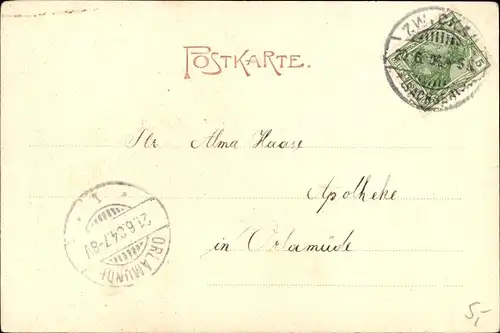 POSTKARTE.
Frl. Alma Haase
Apotheke
in Orlamüde
1
21.6.04.7-8V
ORLAMÜNDE
5,-